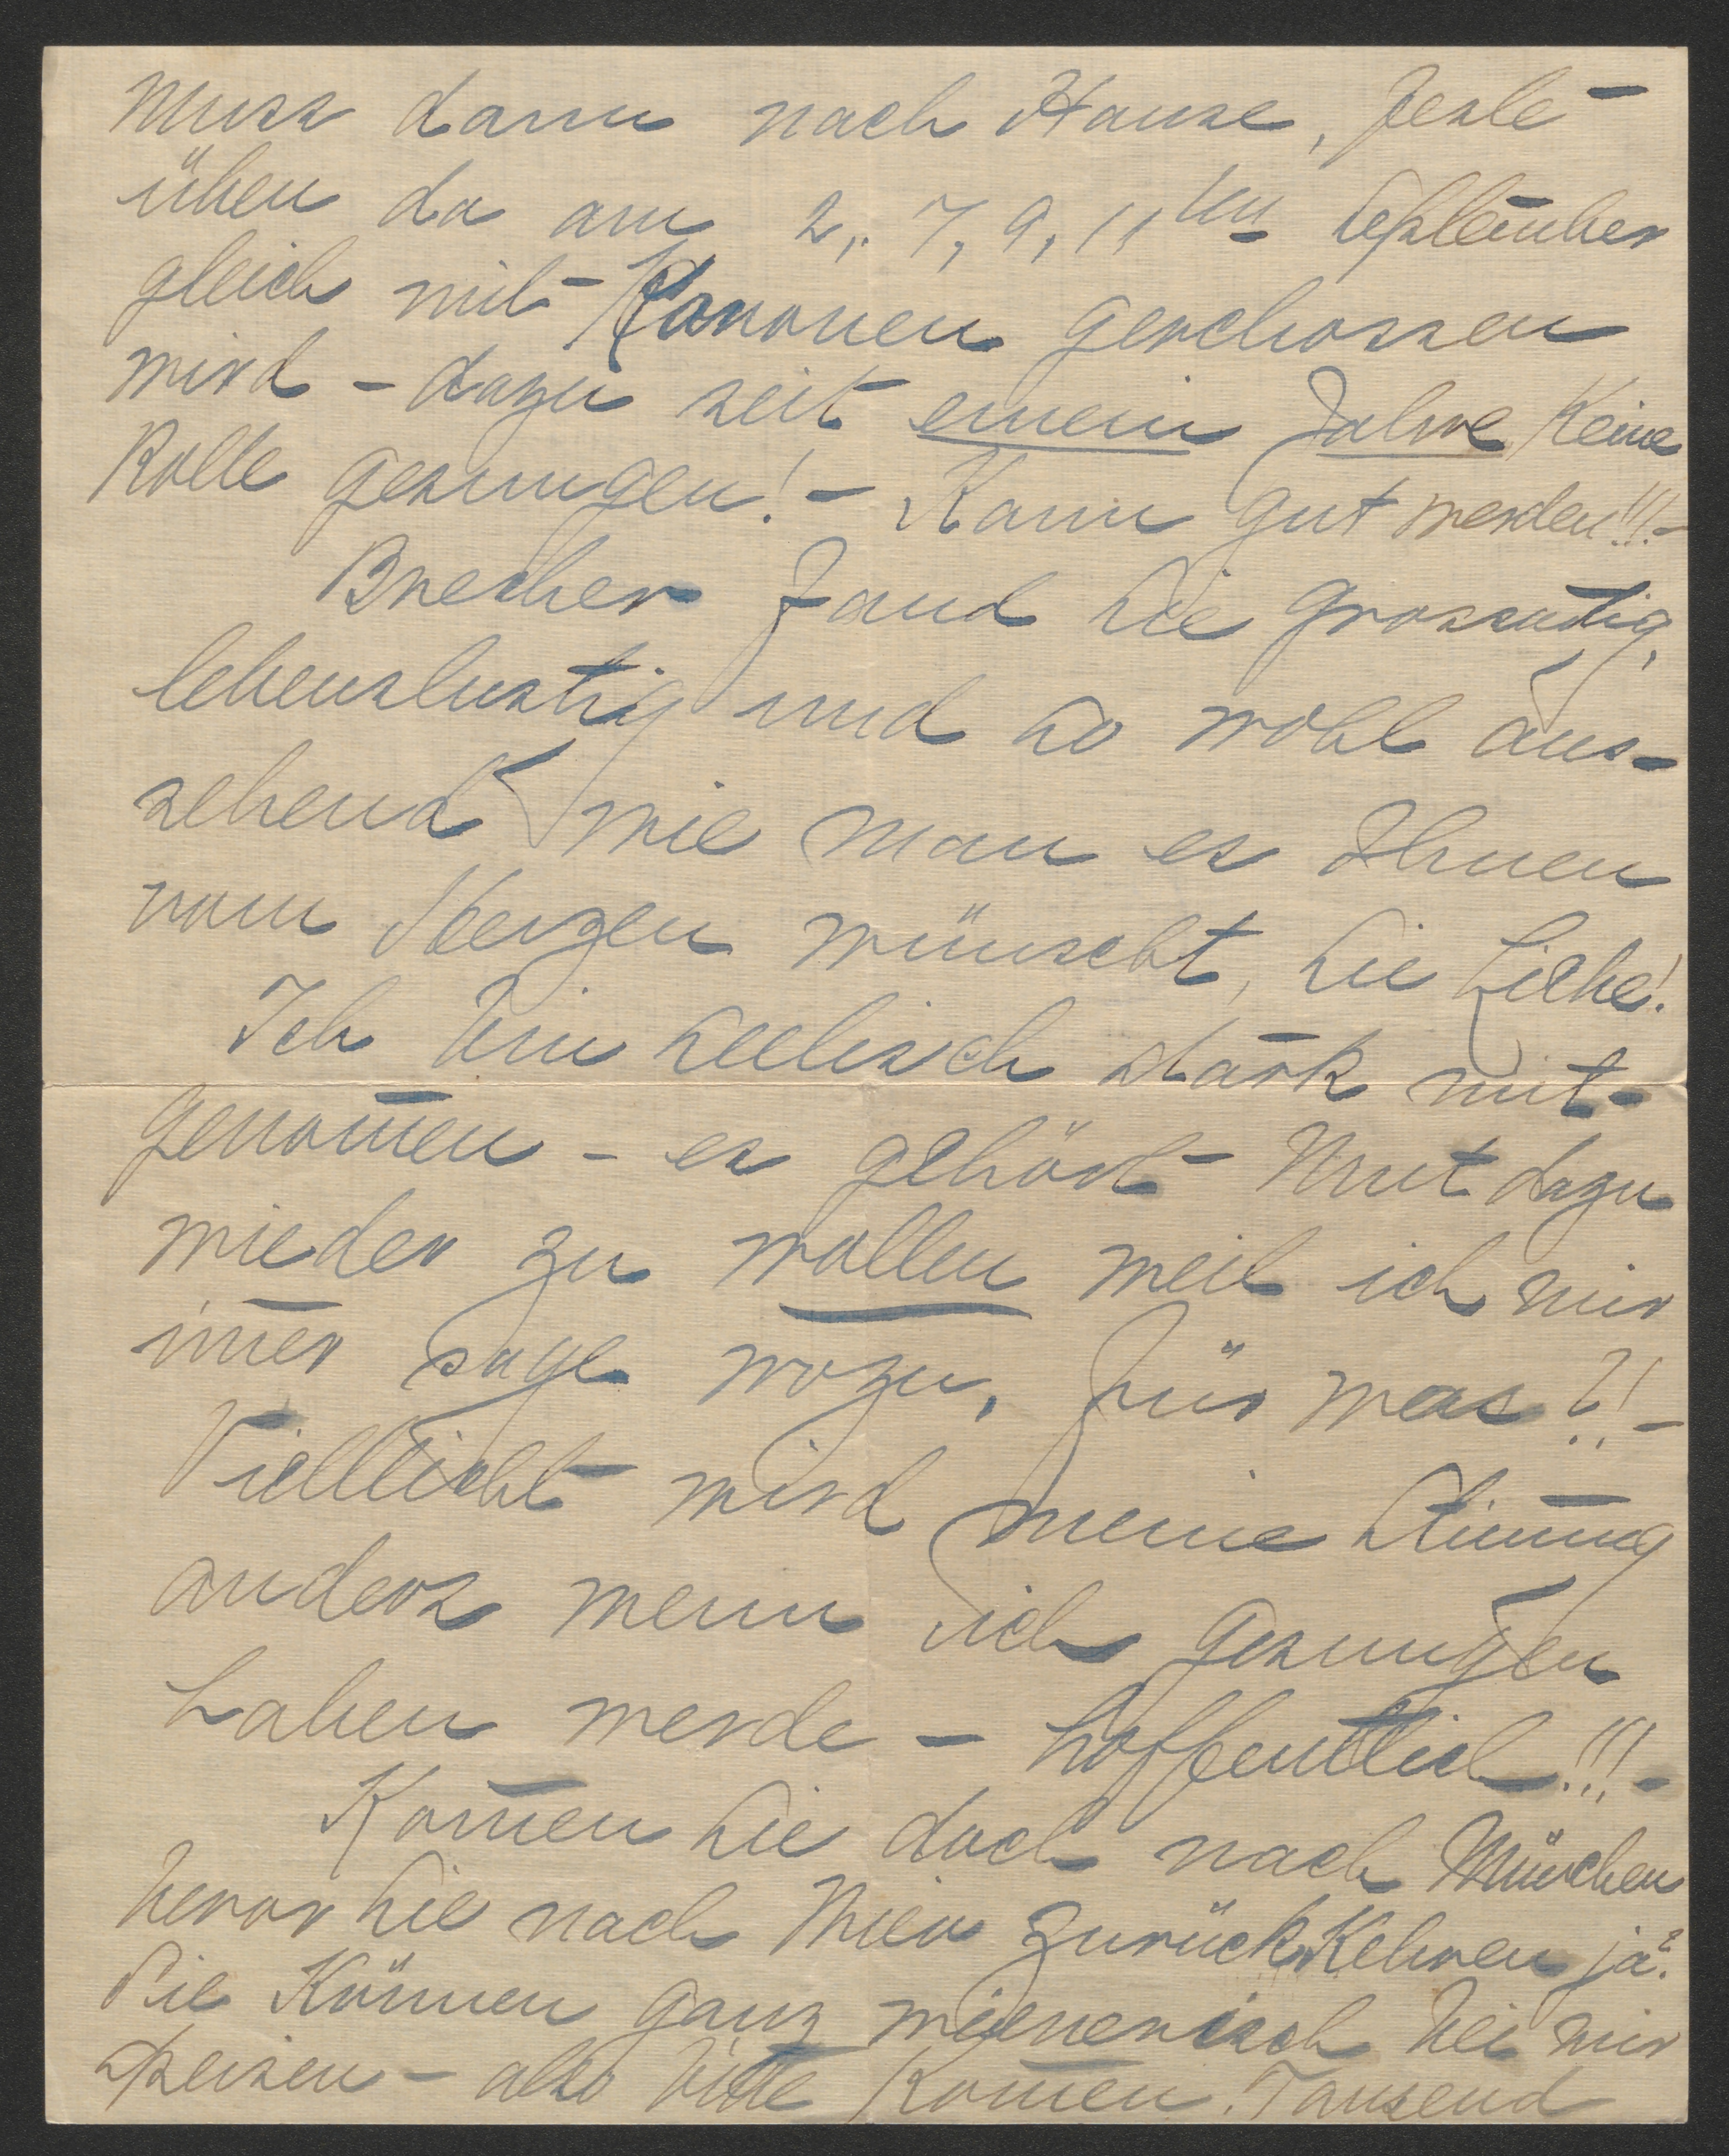 muss dann nach Hause, feste
üben da am 2., 7, 9, 11ten September
gleich mit Kanonen geschossen
wird - dazu seit einem Jahre keine
Rolle gesungen! - Kann gut werden!!! -
Brecher fand Sie grossartig,
lebenslustig und so wohl aus-
sehend wie man es Ihnen
vom Herzen wünscht, Sie Liebe!
Ich bin seelisch stark mit-
genom̅en - es gehört Mut dazu
wieder zu wollen weil ich mir
im̅er sage wozu, für was?! -
Vielleicht wird meine Stim̅ung
anders wenn ich gesungen
haben werde - hoffentlich!!! -
Kom̅en Sie doch nach München
bevor Sie nach Wien zurückkehren ja?
Sie können ganz wienerisch bei mir
speisen - also bitte kom̅en! Tausend